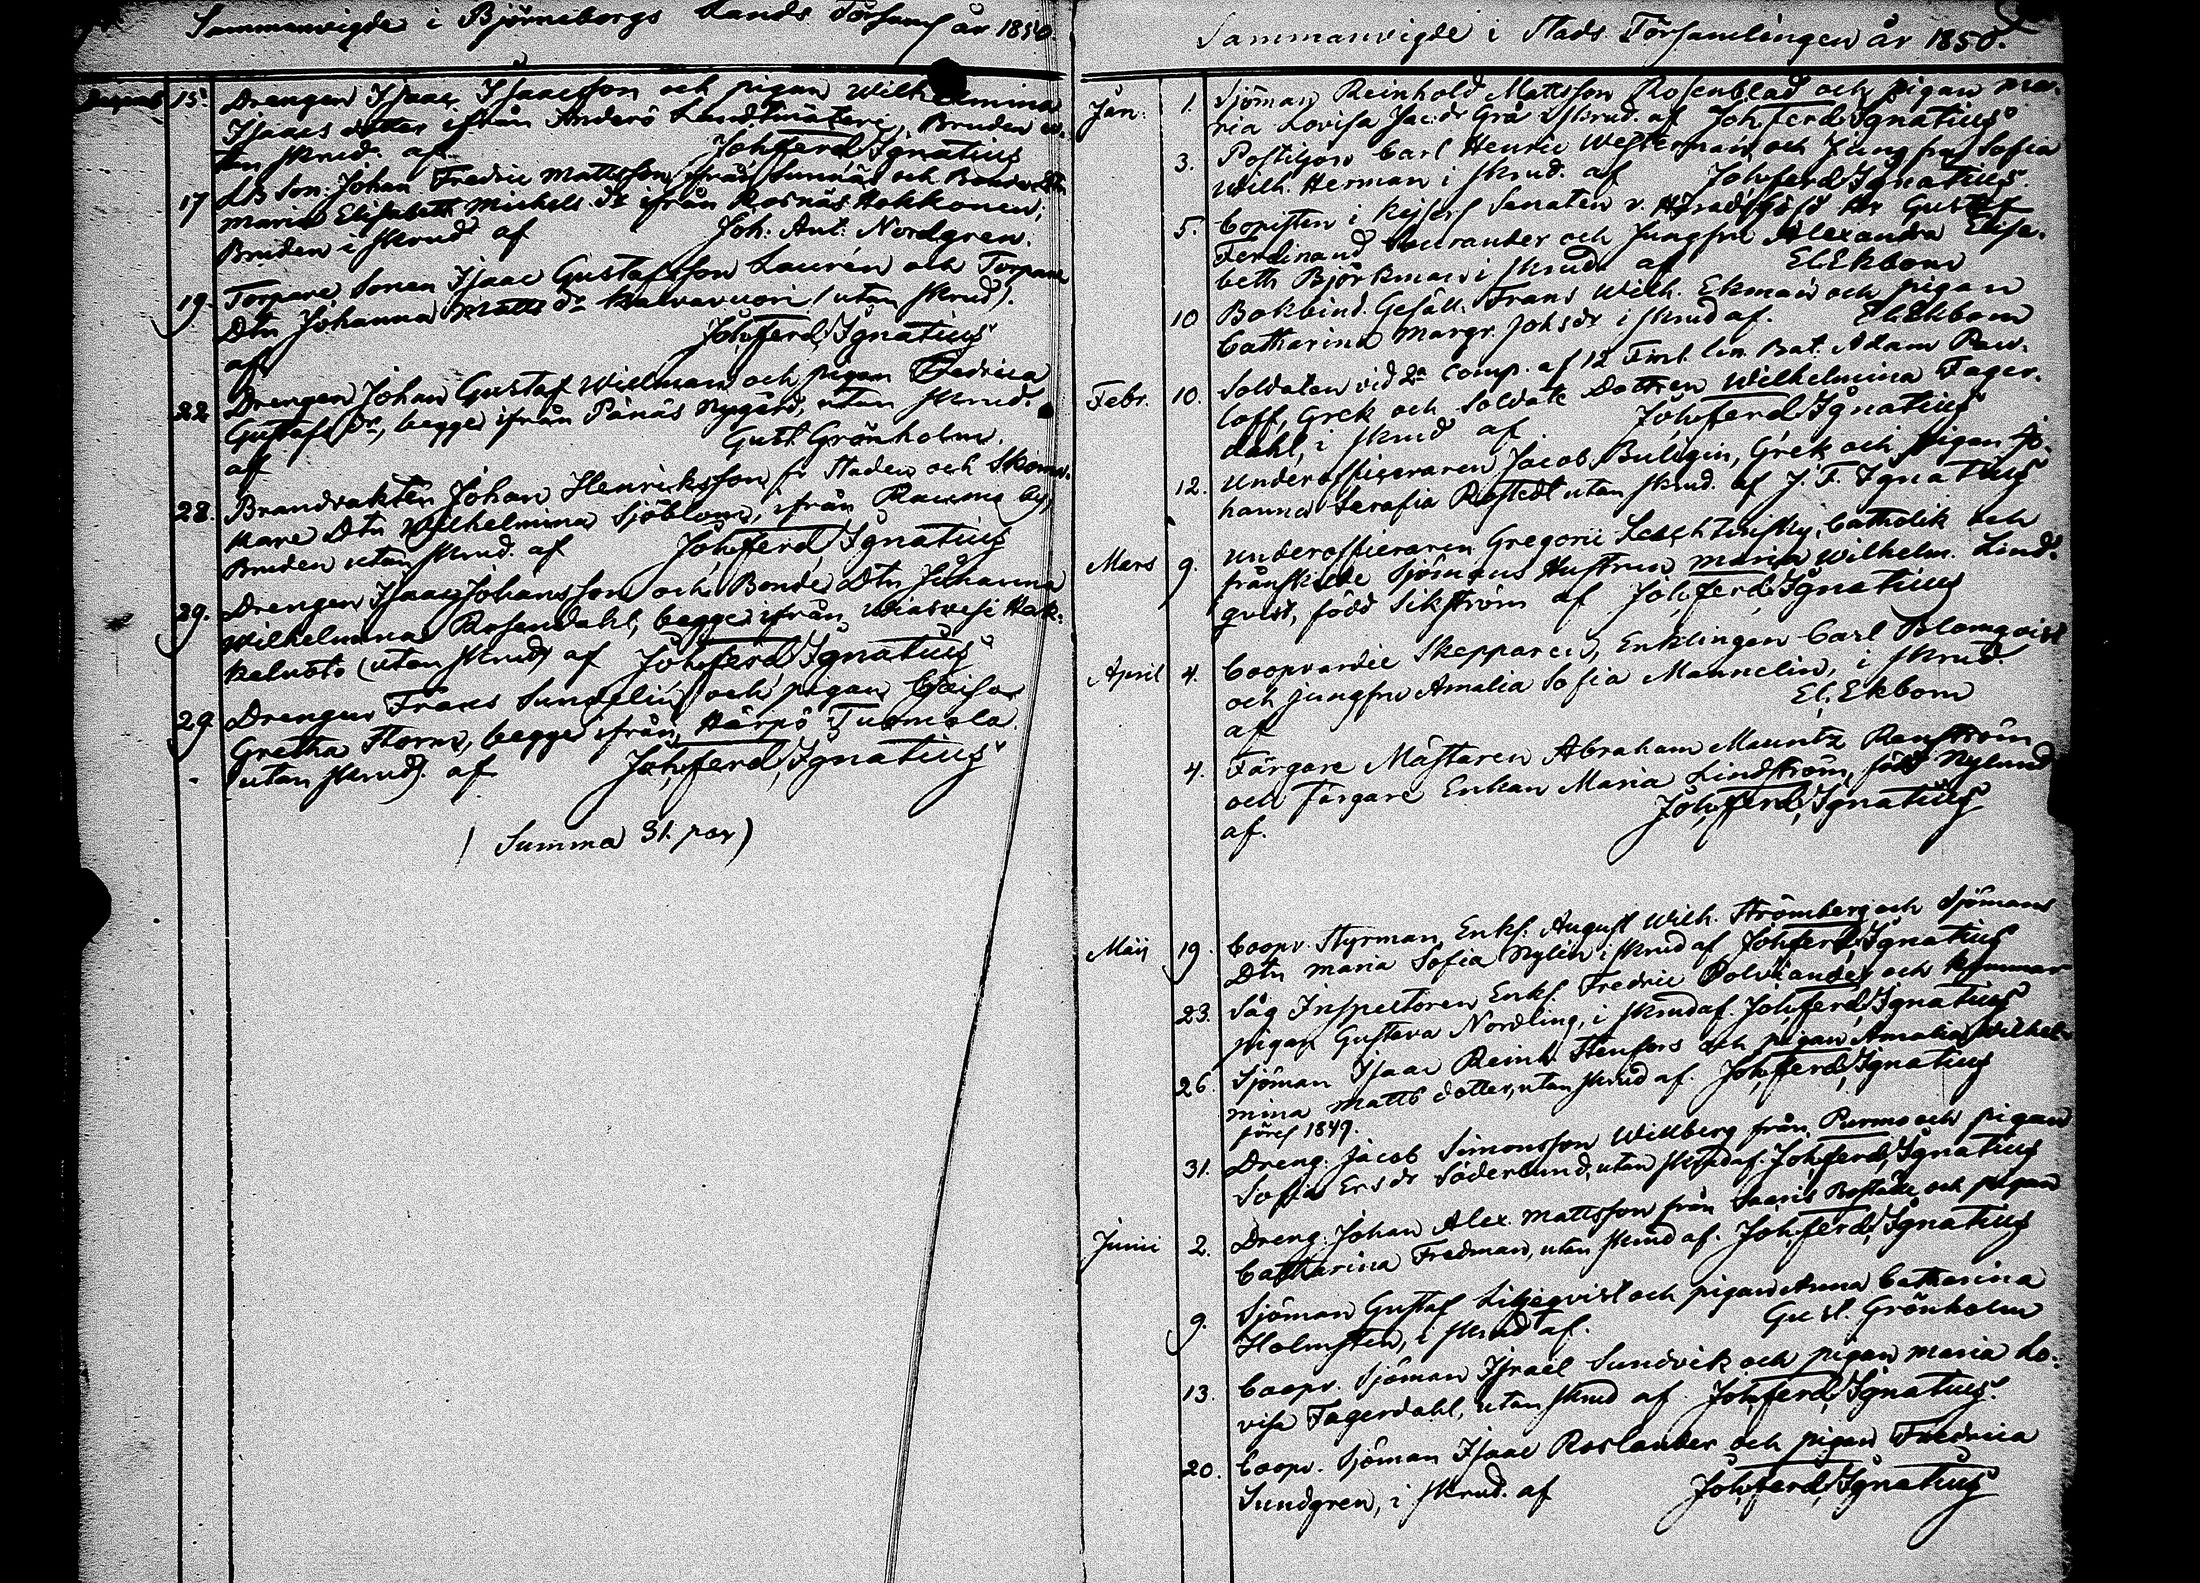 Sammanvigde i Björneborgs Lands Församl år 1850
15. Drengen Isaac Isaacsson och pigan Wilhelmina
Isaacs dotter ifrån Anderö Landtmäteri, Bruden u-
tan skrud. af Joh, ferd, Ignatius
17 LB Son. Johan Fredric Mattsson ifrån Sunnäs och Bonde Dtn
Maria Elisabeth Michels dr ifrån Rosnäs Hokkonen,
Bruden i skrud af Joh: Ant: Nordgren.
19. Torpare Sonen Isaac Gustafsson Laurén och Torpare
Dtn Johanna Matts dr Kalvavuori (utan skrud).
af Joh, ferd, Ignatius
22 Drengen Johan Gustaf Willman och pigan Fredrica
Gustafs dr, begge ifrån Pänäs Nygård, utan skrud.
af Gust Grönholm.
28. Brandvakten Johan Henriksson fr Staden och Skoma-
kare Dtn Wilhelmina Sjöblom, ifrån Raumo by,
Bruden utan skrud. af Joh, ferd, Ignatius
29. Drengen Isaac Johansson och Bonde Dtn Johanna
Wilhelmina Rosendahl, begge ifrån Wiasvesi Hak-
keluoto (utan skrud) af Joh, ferd, Ignatius
29 Drengen Frans Sundelin och pigan Cajsa
Gretha Storm, begge ifrån Härpö Tuomola
(utan skrud). af Joh, ferd, Ignatius
(Summa 31. par)
Sammanvigde i Stads Församlingen år 1850.
Jan: 1. Sjöman Reinhold Mattsson Rosenblad och pigan Ma-
ria Lovisa Jac: dr Grå i skrud. af Joh, ferd, Ignatius
3. Postiljon Carl Henric Westerman och Jungfru Sofia
Wilh. Herman i skrud. af Joh, ferd, Ignatius.
5. Copisten i Kejserl Senaten v. Häradshöfd Hr Gustaf
Ferdinand och Jungfru Alexandra Elisa-
beth Björkman i skrud. af El. Ekbom
10 Bokbind. Gesäll. Frans Wilh. Ekman och pigan
Catharina Margr. Johsdr i skrud af. El. Ekbom
Febr. 10. Soldaten vid 2a Comp. af 12 Finl. lin. Bat. Adam Paw-
loff, Grek och Soldate Dottren Wilhelmina Fager-
dahl, i skrud af Joh, ferd, Ignatius
12. Underofficeraren Jacob Buligin, Grek och pigan Jo-
hanna Serafia Rostedt utan skrud. af J. F. Ignatius
Mars 9. Underofficeraren Gregorii, Catholik och
frånskilde Sjömans Hustrun Maria Wilhelm. Lind-
qvist, född Sikström af Joh, ferd, Ignatius
April 4. Coopvardie Skepparen, Enklingen Carl Blomqvist
och jungfru Amalia Sofia Mannelin, i skrud.
af El. Ekbom
4. Färgare Mästaren Abraham Mauritz Renström
och Färgare Enkan Maria Lindström, född Nylund
af. Joh, ferd, Ignatius
Maij 19. Coopv. Styrman Enkl. August Wilh. Strömberg och Sjömans
Dtn Maria Sofia Nylén, i skrud af Joh, ferd, Ignatius
23. Såg Inspectoren Enkl. Fredric Polviander och kammar
pigan Gustava Nordling, i skrud af. Joh, ferd, Ignatius
26. Sjöman Isaac Reinh. Stenfors och pigan Amalia Wilhel-
mina Matts dotter, utan skrud af. Joh, ferd, Ignatius
förel 1849.
31. Dreng. Jacob Simonsson Willberg från Purmo och pigan
Sofia Ersdr Söderlund, utan skrud af. Joh, ferd, Ignatius
Junii 2. Dreng. Johan Alex. Mattsson från Saaris Boställe och pigan
Catharina Fredman, utan skrud af. Joh, ferd, Ignatius
9. Sjöman Gustaf Liljeqvist och pigan Anna Catharina
Holmsten, i skrud af. Gust. Grönholm
13. Coopv. Sjöman Israel Sundvik och pigan Maria Lo-
visa Fagerdahl, utan skrud af Joh, ferd, Ignatius.
20. Coopv. Sjöman Isaac Roslander och pigan Fredrica
Sundgren, i skrud. af Joh, ferd, Ignatius